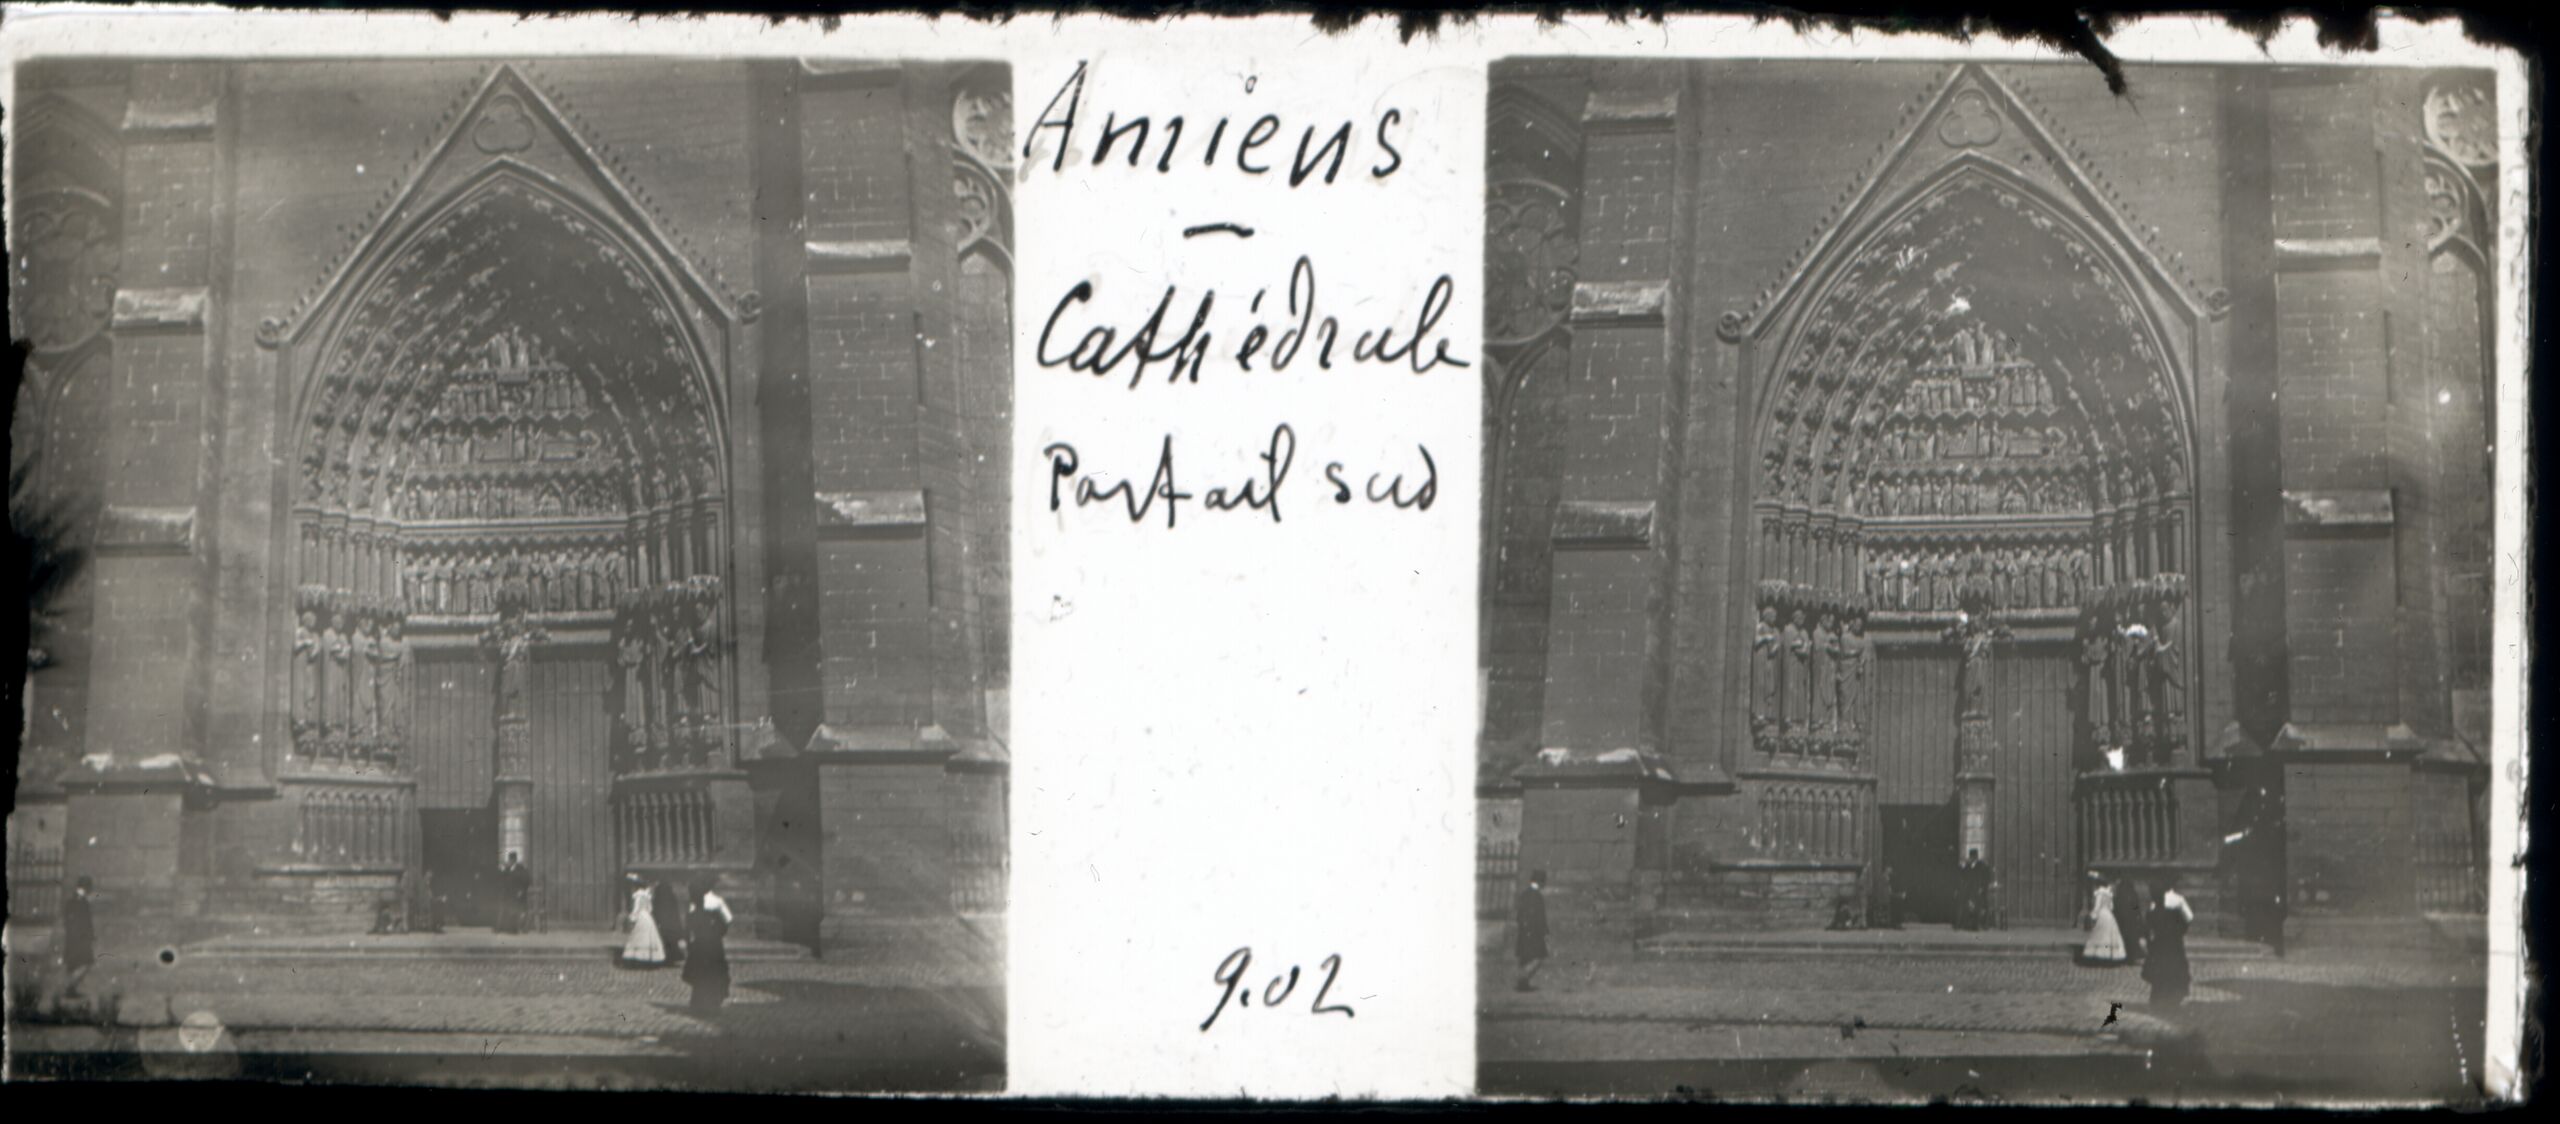 Amiens
—
Cathédrale
Portail sud
9.02